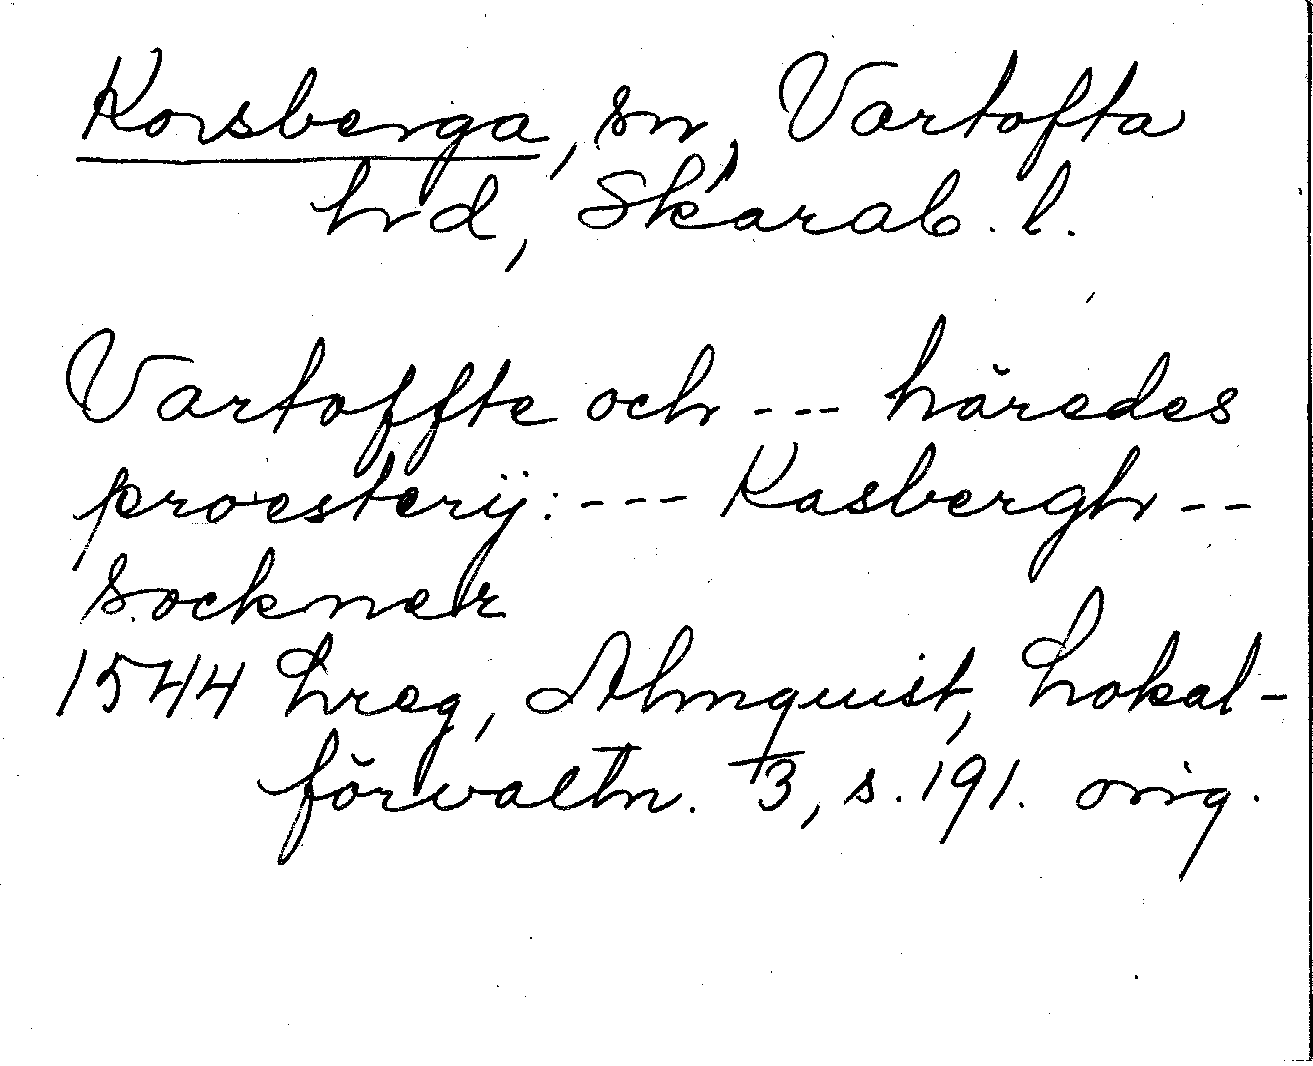 Korsberga, sn, Vartofta
hd, Skarab. l.
Vartoffte och --- häredes
proesterij: --- Kasbergh --
sockner
1544 Lreg, Almquist, Lokal-
förvaltn. 3, s. 191. orig.